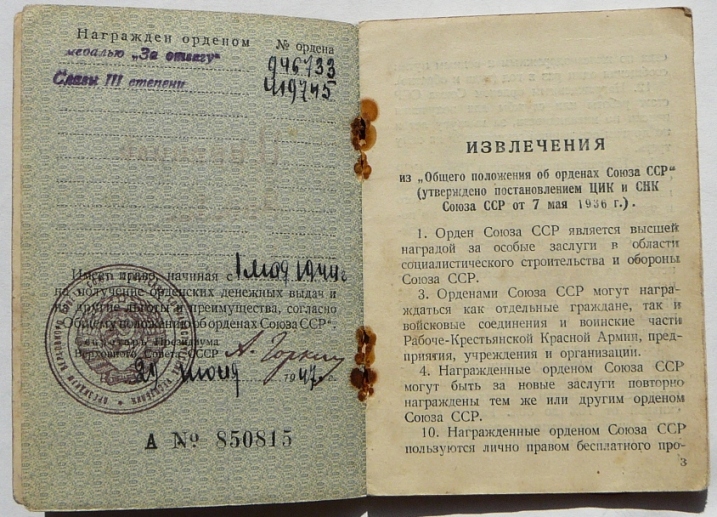 Награжден орденом № ордена
медалью „За отвагу“ 946733
Славы III степени 419745
Имеет право, начиная с 1 мая 1944 г
на получение орденских денежных выдач и
другие льготы и преимущества, согласно
„Общему положению об орденах Союза ССР“.
Секретарь Президиума
Верховного Совета СССР А. Горкин
29 июня 1947 г.
А № 850815
ИЗВЛЕЧЕНИЯ
из „Общего положения об орденах Союза ССР“
(утверждено постановлением ЦИК и СНК
Союза ССР от 7 мая 1936 г.).
1. Орден Союза ССР является высшей
наградой за особые заслуги в области
социалистического строительства и обороны
Союза ССР.
3. Орденами Союза ССР могут на-
граждаться как отдельные граждане, так и
войсковые соединения и воинские части
Рабоче-Крестьянской Красной Армии, пред-
приятия, учреждения и организации.
4. Награжденные орденом Союза ССР
могут быть за новые заслуги повторно
награждены тем же или другим орденом
Союза ССР.
10. Награжденные орденом Союза ССР
пользуются лично правом бесплатного про-
3